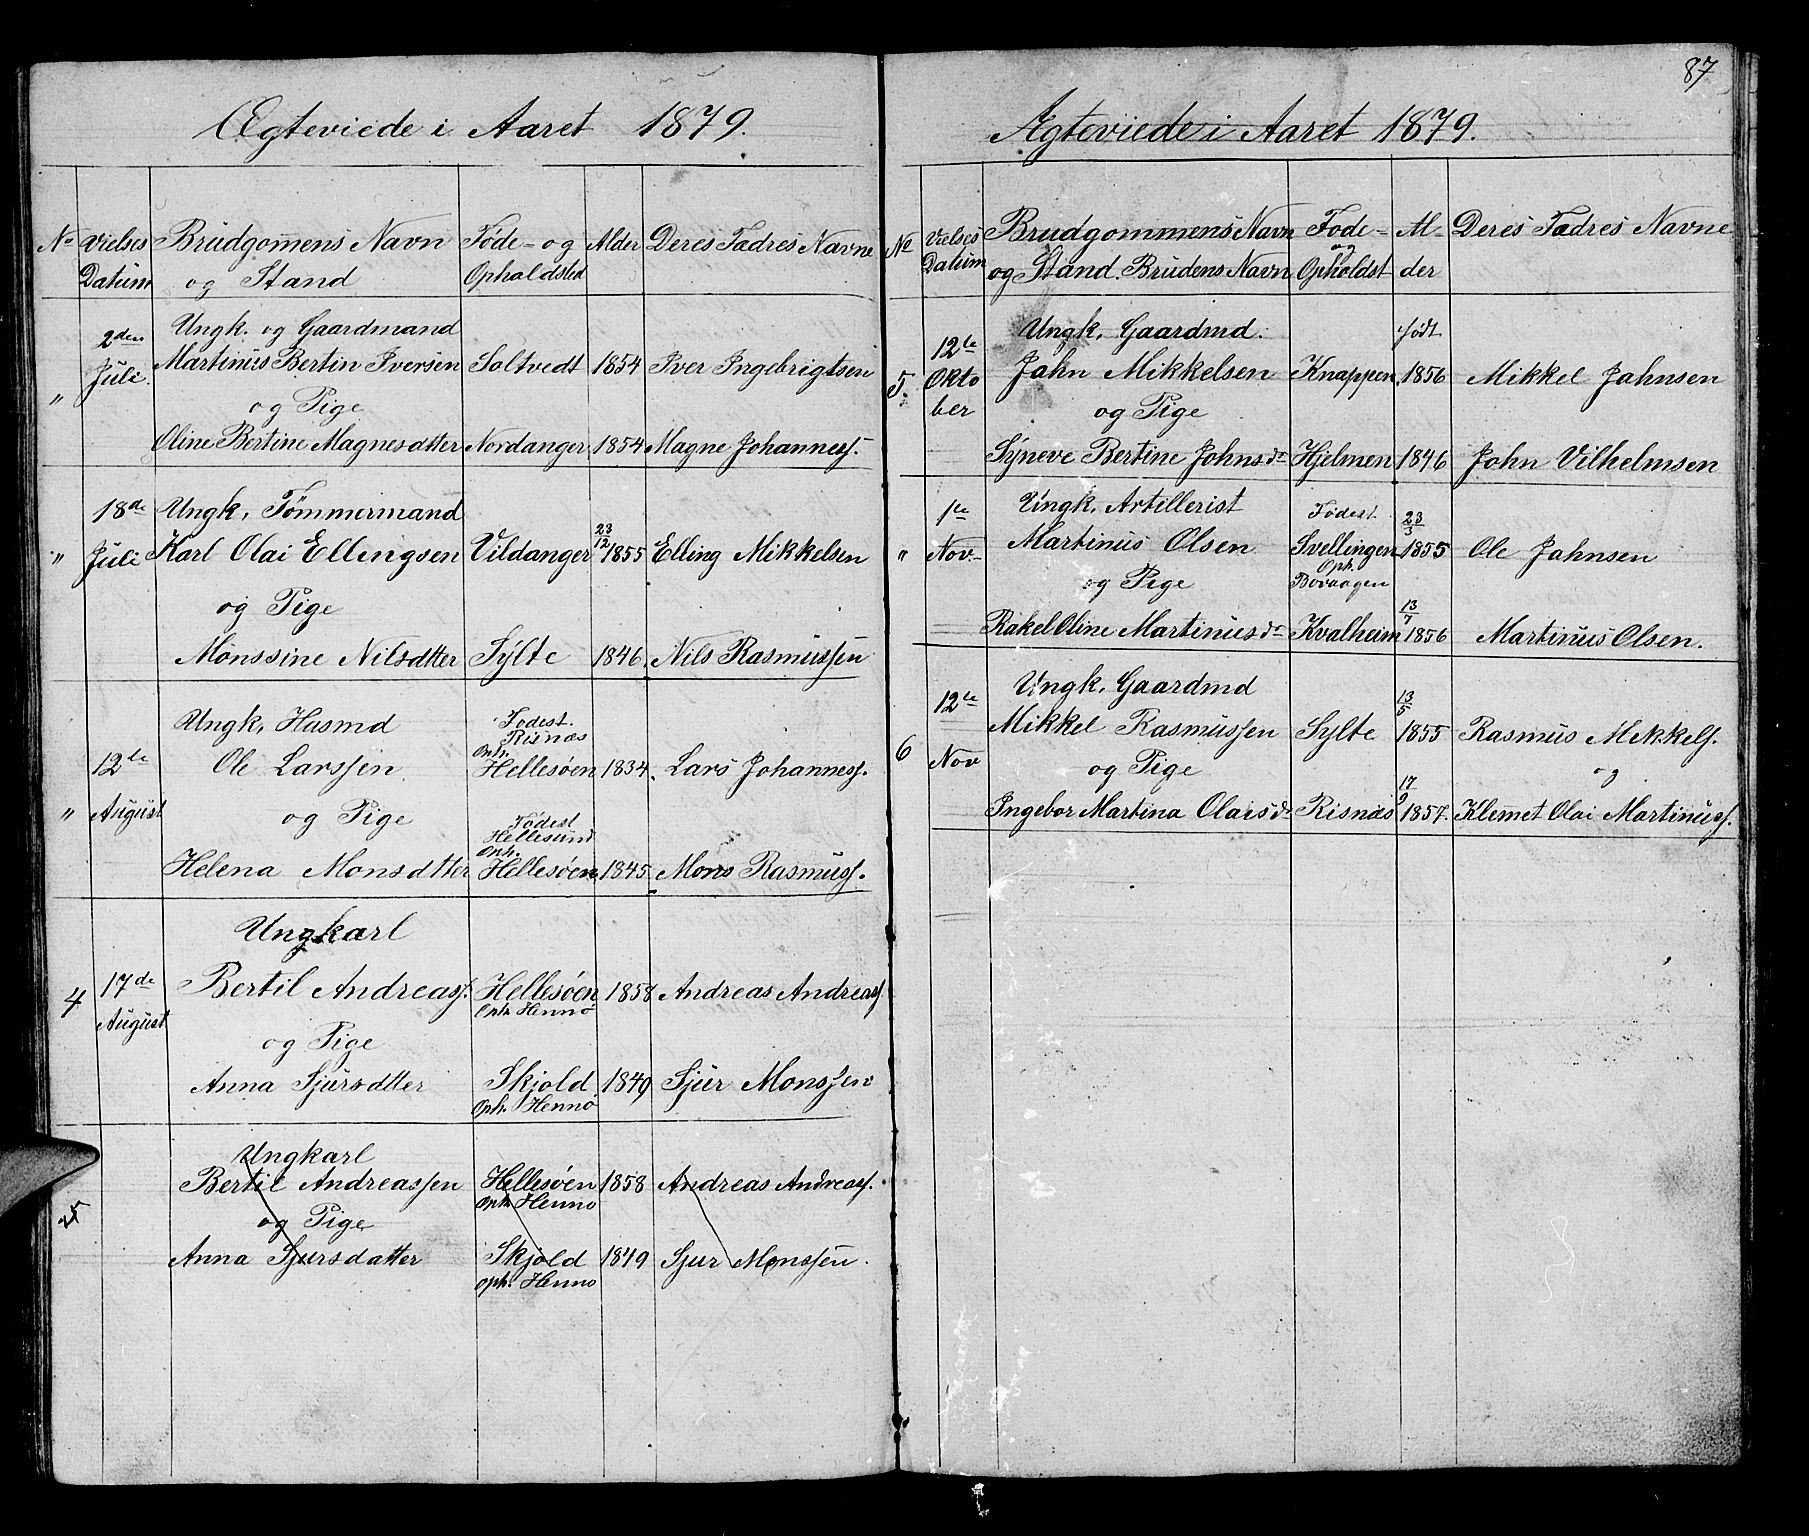 Ægteviede i Aaret 1879.
No Vielses Brudgomens Navn Föde- og Alder Deres Fadres Navne
Datum og Stand Opholdsted
2den Ungk. og Gaardmand
Juli. Martinus Bertin Iversen Soltvedt 1854 Iver Ingebrigtsen
" og Pige
Oline Bertine Magnesdtter Nordanger 1854 Magne Johanness.
18de Ungk, Tömmermand
" Juli Karl Olai Ellingsen Vildanger 23/12 1855 Elling Mikkelsen
og Pige
Monssine Nilsdtter Sylte 1846. Nils Rasmussen
Ungk, Husmd Fodest. Risnæs
12te Ole Larssen Oph. Hellesøen 1834. Lars Johanness.
" August og Pige Födest Hellesund
Helena Monsdtter Oph. Hellesøen 1845. Mons Rasmuss.
Ungkarl
4 17de Bertil Andreass. Hellesøen 1858 Andreas Andreass
August Oph. Hennö
og Pige
Anna Sjursdtter Skjold 1849 Sjur Monssen
Oph. Hennö
Ungkarl
Bertil Andreassen Hellesøen 1858 Andreas Andreass.
Oph. Henno
5 og Pige
Anna Sjursdatter Skjold 1849 Sjur Monssen.
oph. Henno
87
Ægteviede i Aaret 1879.
No Vielses Brudgommens Navn Fode- Al- Deres Fædres Navne
Datum og Stand. Brudens Navn og Opholdst der
12te Ungk, Gaardmd. födt
5. Okto Jahn Mikkelsen Knappen 1856 Mikkel Jahnsen
ber og Pige
Syneve Bertine Johnsdr Hjelmen 1846 John Vilhelmsen
1te Ungk, Artillerist Födest 23/3
" Nov- Martinus Olsen Svellingen 1855 Ole Jahnsen
og Pige Oph. Bovaagen
Rakel Oline Martinusdr Kvalheim 13/7 1856 Martinus Olsen.
12te Ungk, Gaardmd 13/5
6 Mikkel Rasmussen Sylte 1855 Rasmus Mikkels.
Nov og Pige og
Ingebor Martina Olaisdr Risnæs 17/9 1857. Klemet Olai Martinuss.